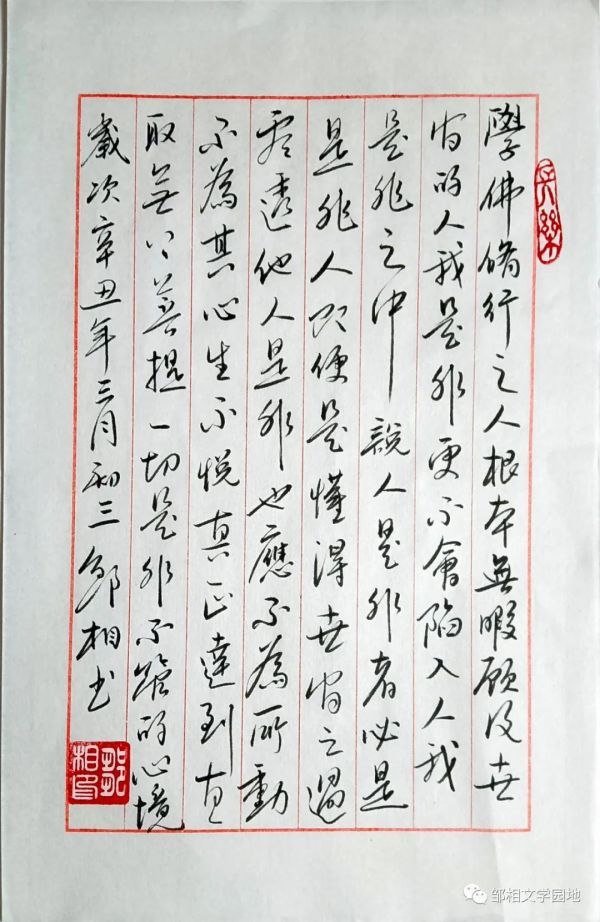 學佛脩行之人根本無暇顧及世
間的人我是非更不會陷入人我
是非之中說人是非者必是
是非人即便是懂得世間之過
看透他人是非也應不為所動
不為其心生不悅真正達到直
取無上菩提一切是非不管的心境
歲次辛丑年三月初三鄒相书
鄒相印
邹相文学园地